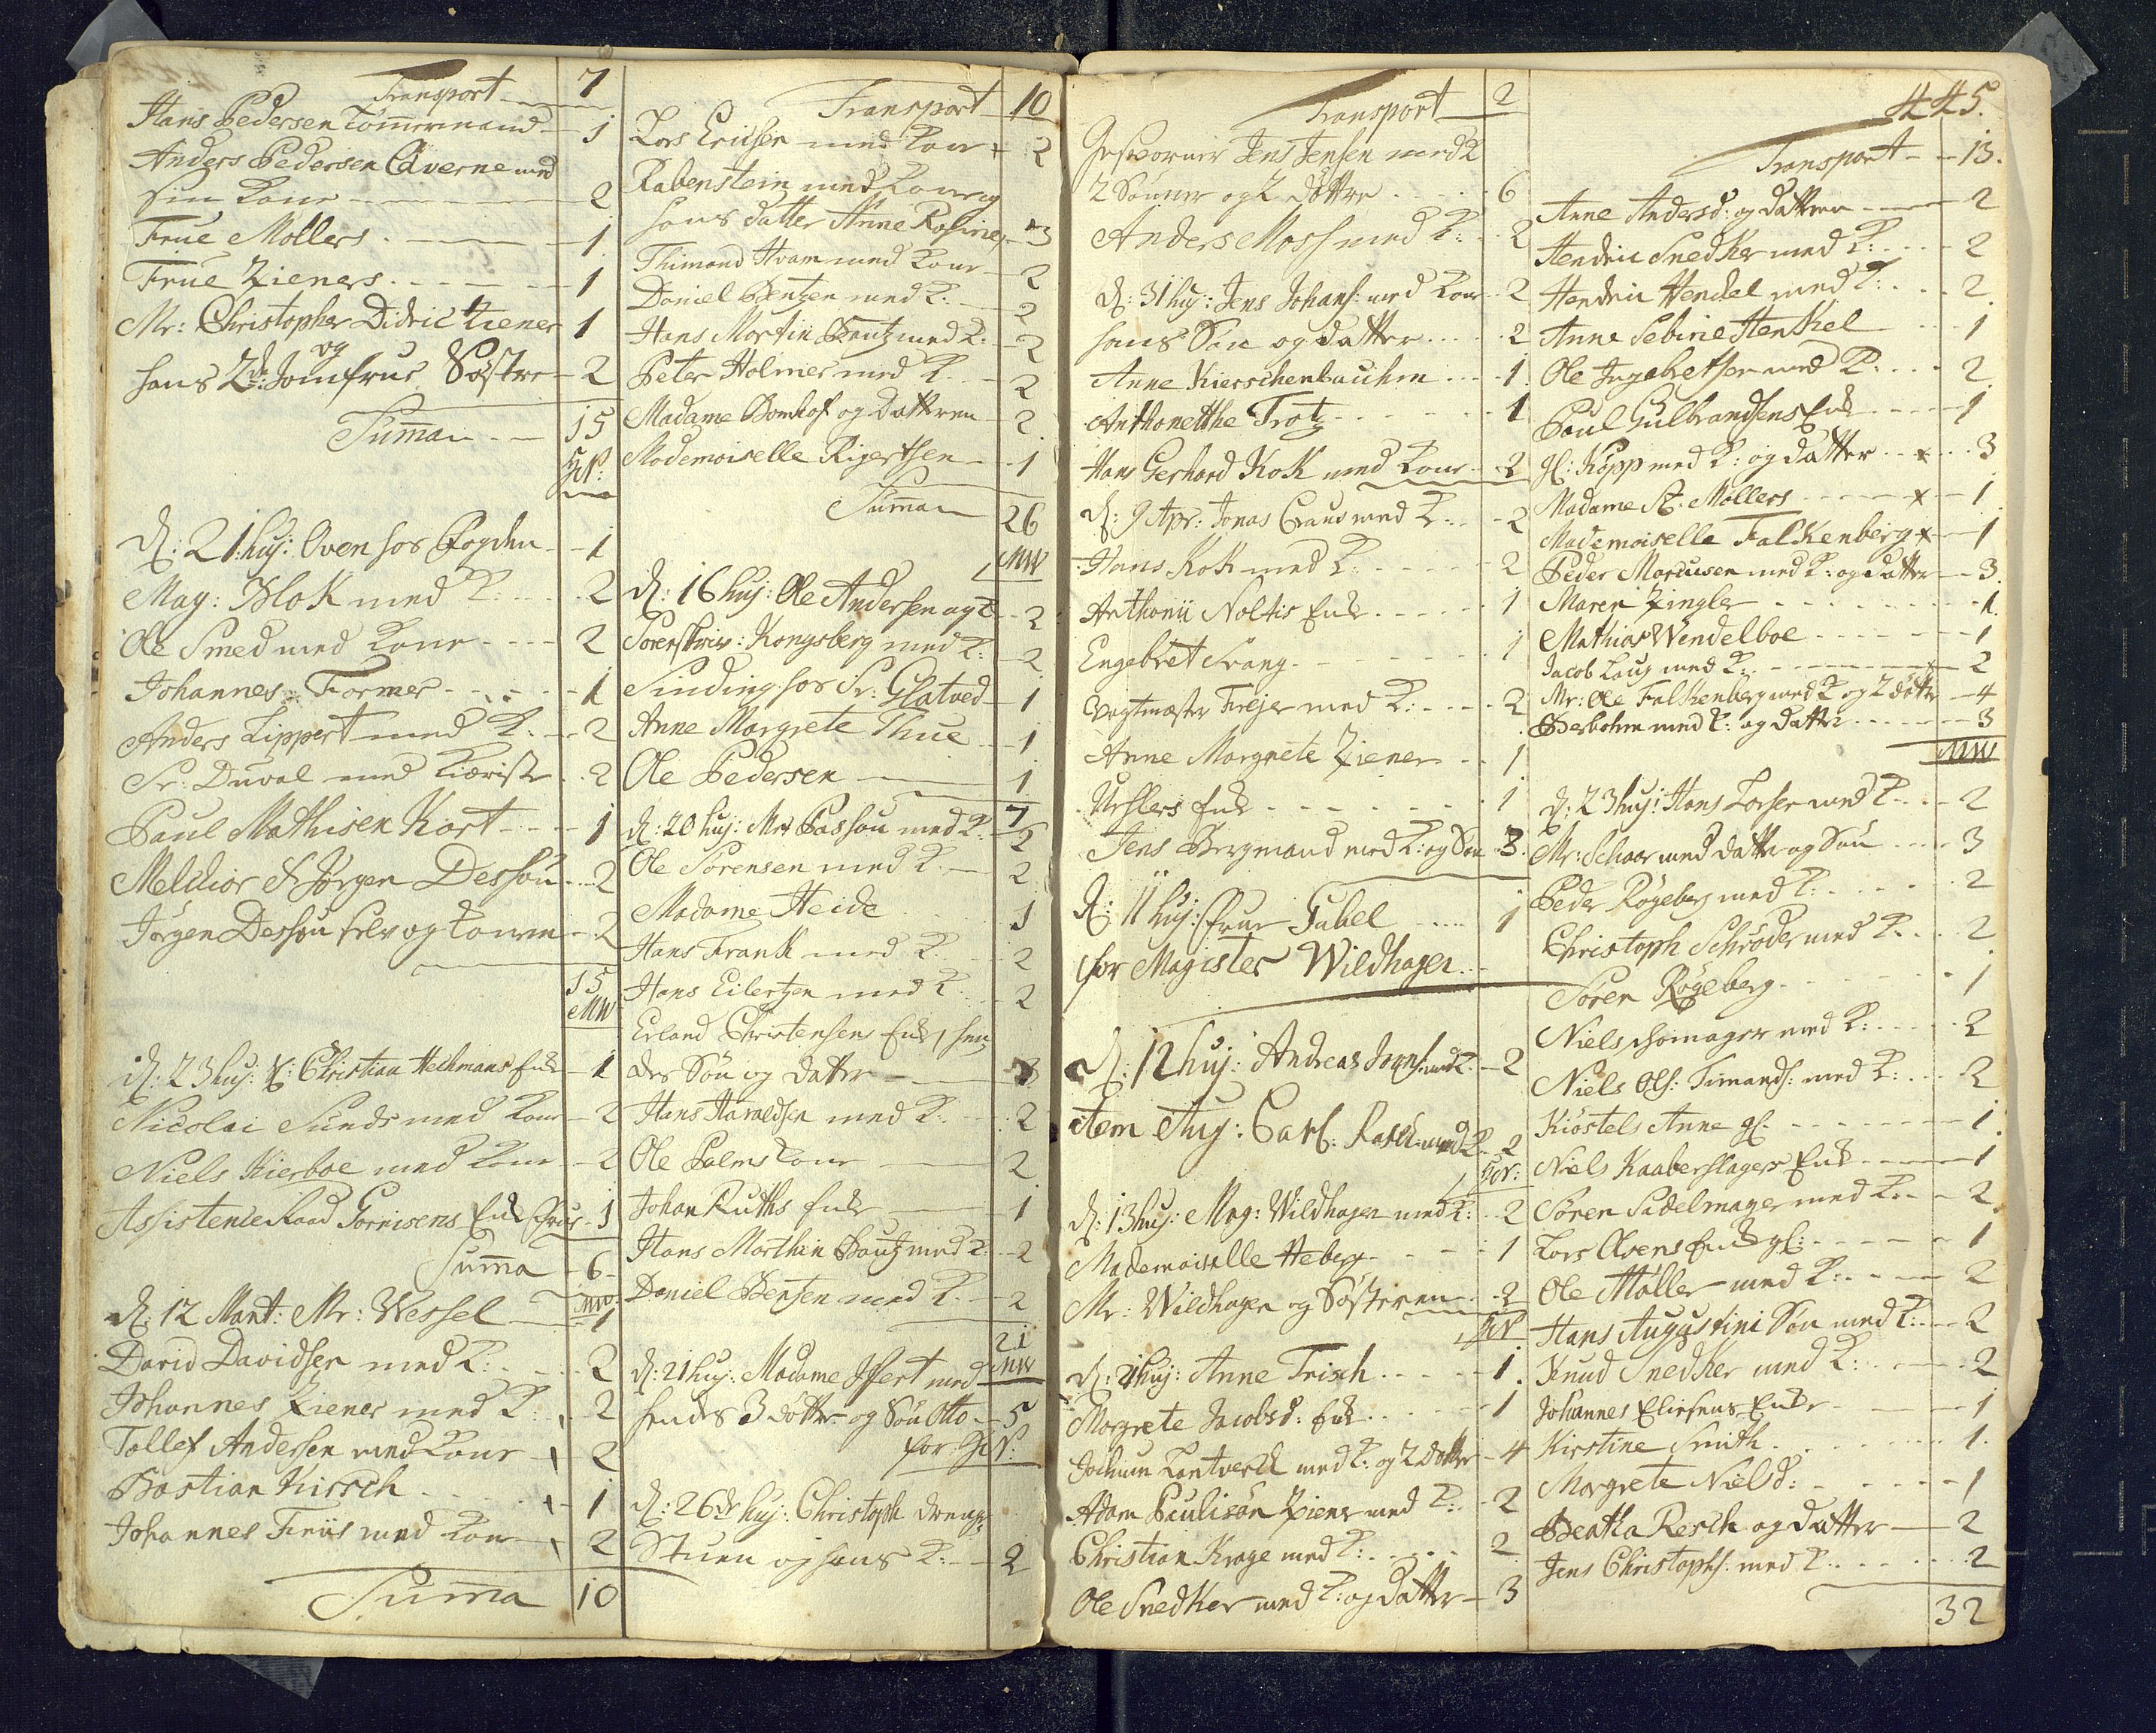 Transport 7
Hans Pedersen Tömmermand 1
Anders Pedersen Caverne med
sin Kone 2
Frue Mollers 1
Frue Zieners 1
Mr: Christopher Didric Ziener 1
og
hans 2de Jomfrue Söstre 2
Summa 15
d: 21 huj: Oven hos Fogden 1
Mag: Blok med K: 2
Ole Smed med Kone 2
Johannes Former 1
Anders Lippert med K. 2
Sr: Duval med Kiæriste 2
Paul Mathisen Kort 1
Melchior & Jörgen Dessou 2
Jörgen Dessou selv og Konen 2
15
MW
d: 23 huj: Christian Heckmans Enke 1
Nicolai Sunds med Kone 2
Niels Kierboe med Kone 2
Assistence Raad Gornisens Enke Frue 1
Summa 6
MW
d: 12 Mart: Mr: Wessel 1
David Davidsen med K: 2
Johannes Ziener med K: 2
Tollef Andersen med Kone 2
Bastian Kirsch 1
Johannes Friis med Kone 2
Summa 10
Transport 10
Lars Ericksen med Kone 2
Rabenstein med Kone og
hans datter Anne Rosine 3
Thimand Hvam med Kone 2
Daniel Bentzen med K. 2
Hans Mortin Bautz med K. 2
Peter Holmer med K. 2
Madame Bomhof og Datteren 2
Mademoiselle Rigertsen 1
Summa 26
MW
d: 16 huj: Ole Andersen og K 2
Sorenskriv: Kongsberg med K: 2
Sinding hos Sr: Glatved 1
Anne Margrete Thue 1
Ole Pedersen 1
7
d: 20 huj: Mr Passou med K. 2
Ole Sörensen med K. 2
Madame Heide 1
Hans Frank med K. 2
Hans Eilertzen med K. 2
Erland Christensens Enke, hen
des Sön og Datter 3
Hans Haraldsen med K. 2
Ole Palms Kone 2
Johan Ruths Enke 1
Hans Morthin Bautz med K: 2
Daniel Bensen med K. 2
21
MW
d: 21 huj: Madame Ifert med
hendes 3 döttre og Sön Otto 5
for
d: 26de huj: Christoph
Stuen og hans K: 2
Transport 2
Jens Jensen med K
2 Sönner og 2 döttre 6
Anders Moss med K: 2
d: 31 huj: Jens Johans: med Kone 2
hans Sön og datter 2
Anne Kierschenbauhm 1
Anthonetthe Trotz 1
Hans Gerhard Kok med Kone 2
d: 9 Apr: Jonas Craus med K: 2
Hans Kok med K: 2
Anthonii Noltis Enke 1
Engebret Svang 1
Vagtmester Freje med K: 2
Anne Margrete Ziener 1
Urslers Enke 1
Jens Bergmand med K: og Sön 3
d: 11 huj: Frue Gabel 1
for Magister Wildhagen
d: 12 huj: Andreas med K. 2
item Aug: Carl: Rasch med K. 2
d: 13 huj: Mag: Wildhagen med K: 2
Mademoiselle Heberg 1
Mr: Wildhagen og Sösteren 2
d: 21 huj: Anne Frisch 1
Margrete Jacobsd: Enke 1
Jochum Lantverck med K: og 2 Döttre 4
Adam Paulisön Ziener med K: 2
Christian Krage med K: 2
Ole Snedker med K: og Datter 3
445.
Transport 13.
Anne Andersd: og datteren 2
Hendric Snedker med K: 2
Hendric Hendel med K: 2
Anne Sebine Henkel 1
Ole Ingebretsen med K. 2
Paul Gulbrandsens Enke 1
gl: Kopp med K: og datter x 3
Madame St: Mollers x 1
Mademoiselle Falkenberg x 1
Peder Marcusen med K: og datter 3
Maren Zingler 1
Mathias Wendelboe 1
Jacob Laug med K: 2
Mr: Ole Falkenberg med K og 2 döttre 4
Berbohm med K: og datter 3
MW
d: 23 huj: Hans Larsen med K. 2
Mr: Schaar med datter og Sön 3
Peder Rögeberg med K: 2
Christoph Schröder med K. 2
Sören Rögeberg 1
Niels Skomager med K: 2
Niels Ols: Timands: med K: 2
Kiöstels Anne gl. 1
Niels Kaaberslagers Enke 1
Sören Sadelmager med K: 2
Lars Olsens Enke gl: 1
Ole Möller med K: 2
Hans Augustini Sön med K: 2
Knud Snedker med K: 2
Johannes Eliesens Enke 1
Kirstine Smith 1
Margrete Nielsd: 1
Beatha Resch og datter 2
Jens Christophs: med K. 2
32